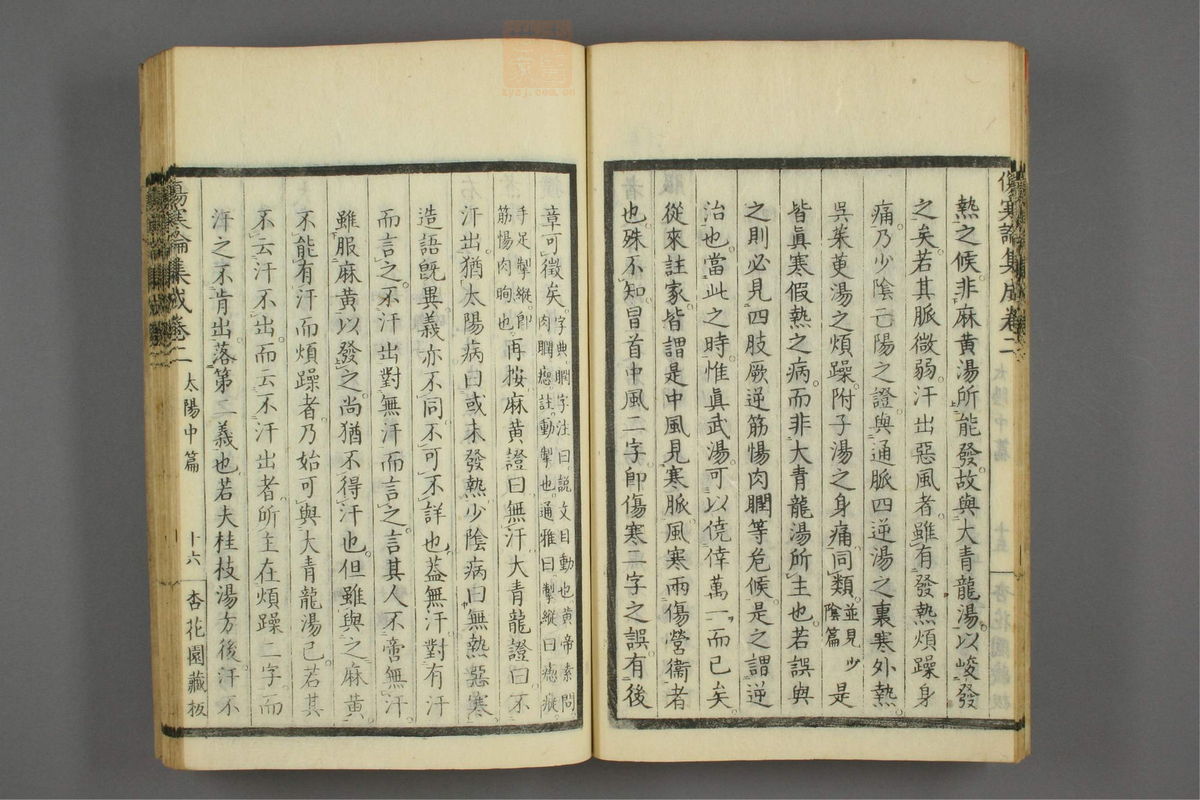 傷寒論集成卷二
熱之候。非麻黄湯所能發。故與大青龍湯。以峻發
之矣。若其脈微弱。汗出惡風者。雖有發熱煩躁身
痛。乃少陰亡陽之證。與通脈四逆湯之裏寒外熱。
呉茱萸湯之煩躁。附子湯之身痛。同類。並見少陰篇是
皆眞寒假熱之病。而非大青龍湯所主也。若誤與
之。則必見四肢厥逆筋惕肉瞤等危候。是之謂逆
治也。當此之時。惟眞武湯。可以僥倖萬一而已矣
從來註家。皆謂是中風見寒脈。風寒兩傷營衞者
也。殊不知冒首中風二字。卽傷寒二字之誤。有後
章可徵矣。字典。瞤字注曰。說文目動也。黄帝素問
肉瞤瘛註。動掣也。通雅曰。掣縱曰瘛瘲。
手足掣縱。卽
筋惕肉眴也。再按麻黄證曰無汗。大青龍證曰不
汗出。猶太陽病曰或未發熱。少陰病曰無熱惡寒。
造語旣異。義亦不同。不可不詳也。蓋無汗對有汗
而言之。不汗出對無汗而言之。言其人不啻無汗。
雖服麻黄以發之。尚猶不得汗也。但雖與之麻黄。
不能有汗而煩躁者。乃始可與大青龍湯已。若其
不云汗不出。而云不汗出者。所主在煩躁二字。而
汗之不肯出。落第二義也。若夫桂枝湯方後。汗不
傷寒論集成卷二
太陽中篇
十六
杏花園藏板